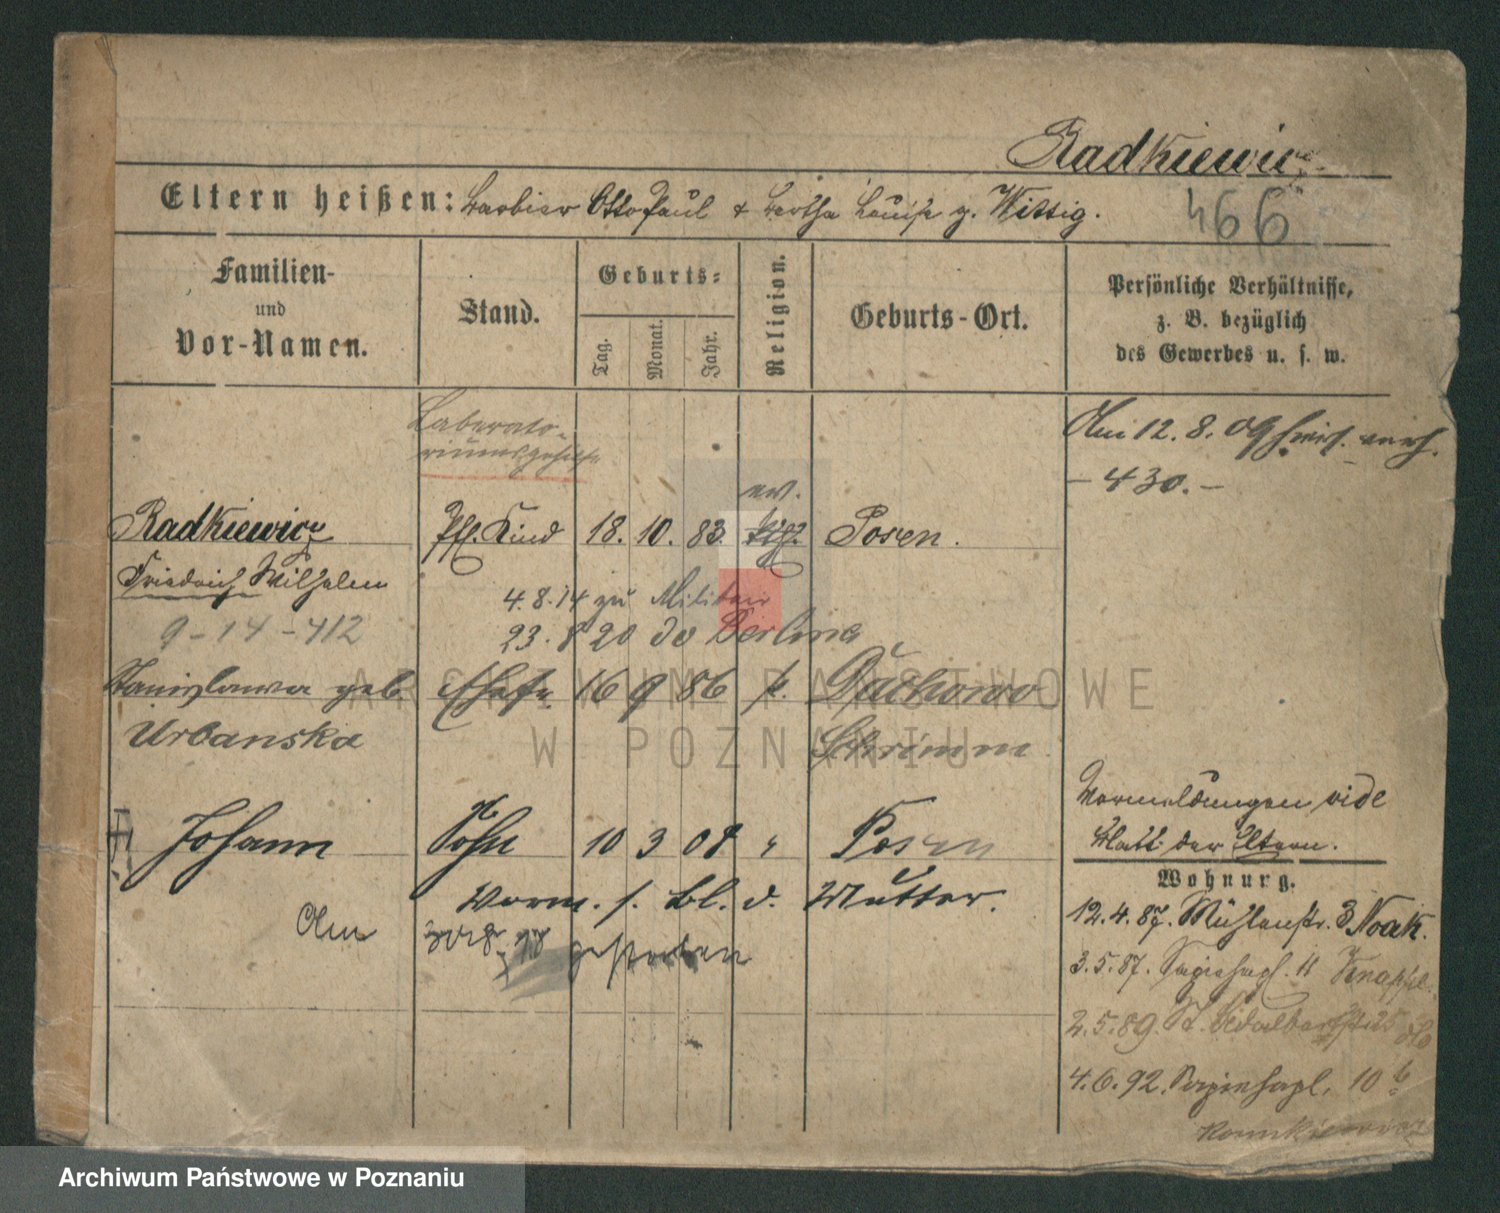 Radkiewicz
Eltern heißen: Barbier Otto Paul & Bertha Louise g. Wittig.
466
Familien-
und
Vor-Namen.
Stand.
Geburts-
Tag.
Monat.
Jahr.
Religion.
Geburts-Ort.
Persönliche Verhältnisse,
z. B. bezüglich
des Gewerbes u. s. w.
Laborato-
riumsgehilfe
Am 12. 8. 09
- 430. -
ev.
Radkiewicz Pfl. Kind 18. 10. 83. Posen.
Friedrich Wilhelm
4. 8. 14 zu Militair
9-14-412
23. 8 20 do Berline
Stanislawa geb. Ehefr. 16 9 86 k. Dachowo
Urbanska Schrimm
Vormeldungen vide
Blatt der Eltern.
Johann Sohn 10 3 08 " Posen
Wohnung.
Vorm. s. Bl. d. Mutter.
12. 4. 87. Mühlenstr. 3 Noak.
Am gestorben
3. 5. 87. 11
2. 5. 89.
4. 6. 92. 10 b
ARCHIWUM PAŃSTWOWE
W POZNANIU
Archiwum Państwowe w Poznaniu